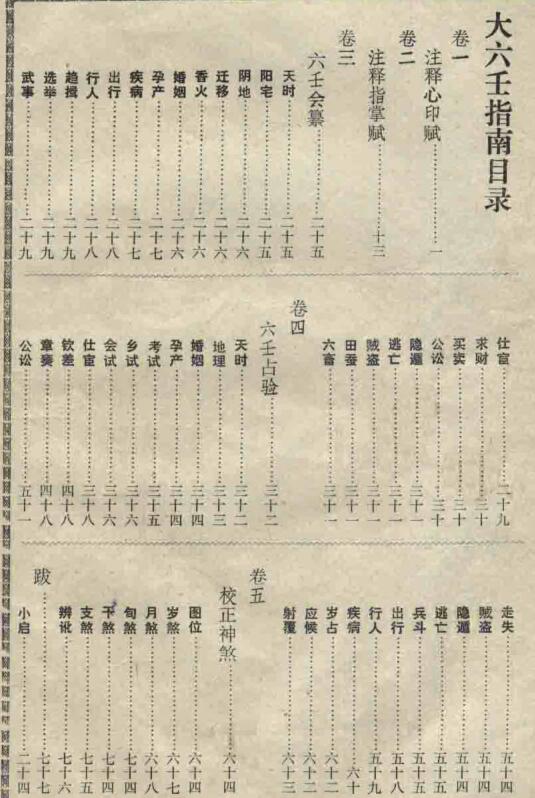 大六壬指南目录
卷一
注释心印赋…………一
卷二
注释指掌赋…………十三
卷三
六壬会纂…………二十五
天时…………二十五
阳宅…………二十五
阴地…………二十六
迁移…………二十六
香火…………二十六
婚姻…………二十六
孕产…………二十七
疾病…………二十七
出行…………二十八
行人…………二十八
趋揖…………二十九
选举…………二十九
武事…………二十九
仕宦…………二十九
求财…………三十
买卖…………三十
公讼…………三十
隐遁…………三十一
逃亡…………三十一
贼盗…………三十一
田蚕…………三十一
六畜…………三十一
卷四
六壬占验…………三十二
天时…………三十二
地理…………三十三
婚姻…………三十四
孕产…………三十四
考试…………三十五
乡试…………三十六
会试…………三十六
仕宦…………三十八
钦差…………四十八
章奏…………四十八
公讼…………五十一
走失…………五十四
贼盗…………五十四
隐遁…………五十四
逃亡…………五十五
兵斗…………五十五
出行…………五十八
行人…………五十九
疾病…………六十
岁占…………六十二
应候…………六十二
射覆…………六十三
卷五
校正神煞…………六十四
图位…………六十四
岁煞…………六十七
月煞…………六十八
旬煞…………七十四
干煞…………七十四
支煞…………七十五
辨讹…………七十六
跋…………七十七
小启…………二十四